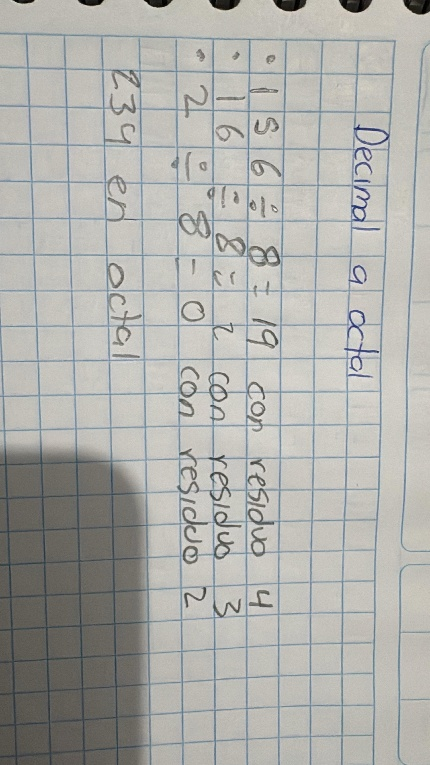 Decimal a octal
· 156 ÷ 8 = 19 con residuo 4
· 16 ÷ 8 = 2 con residuo 3
· 2 ÷ 8 = 0 con residuo 2
234 en octal